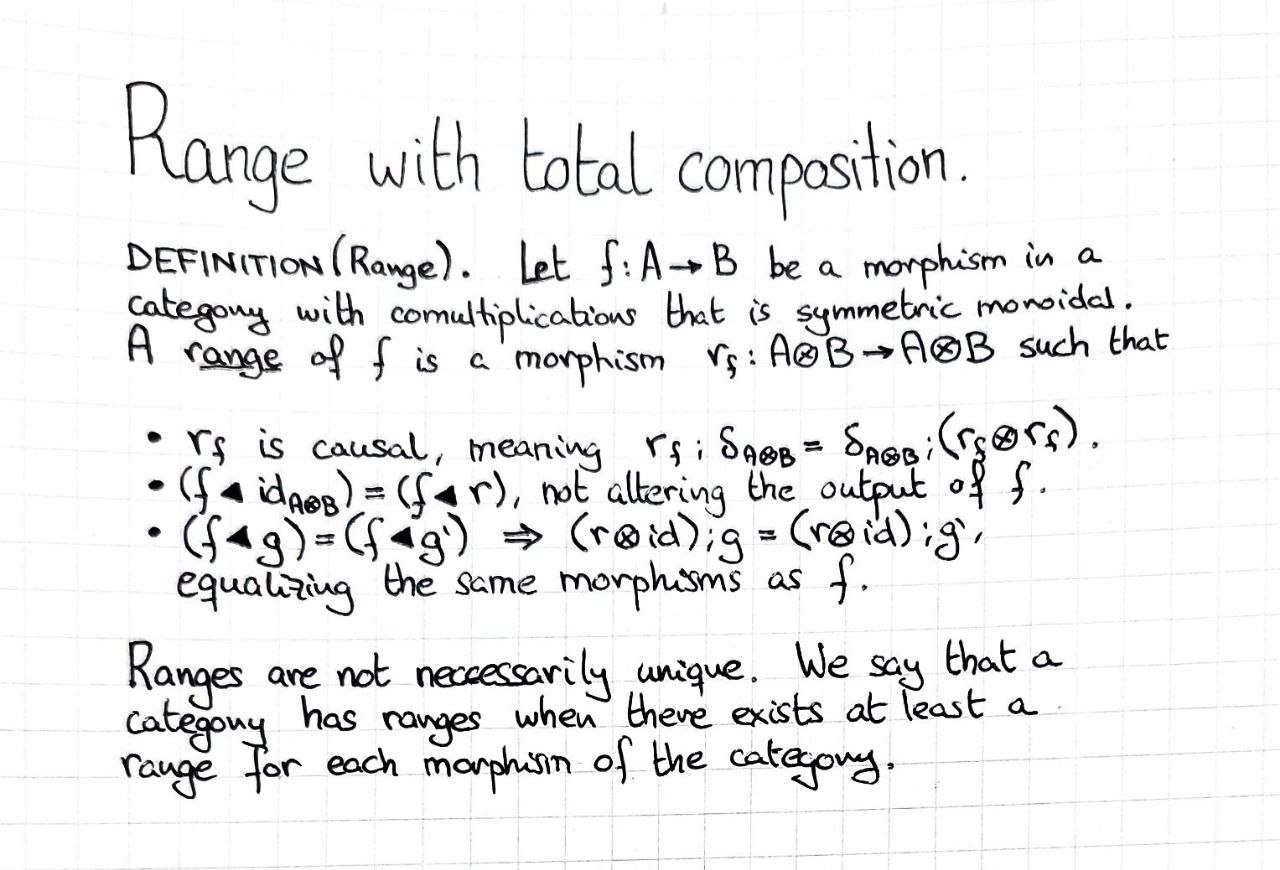 Range with total composition.
DEFINITION (Range). Let f: A → B be a morphism in a
category with comultiplications that is symmetric monoidal.
A range of f is a morphism r_f : A⊗B → A⊗B such that
• r_f is causal, meaning r_f ; δ_A⊗B = δ_A⊗B ; (r_f ⊗ r_f).
• (f ◀ id_A⊗B) = (f ◀ r), not altering the output of f.
• (f ◀ g) = (f ◀ g') ⇒ (r⊗id) ; g = (r⊗id) ; g',
equalizing the same morphisms as f.
Ranges are not neccessarily unique. We say that a
category has ranges when there exists at least a
range for each morphism of the category.